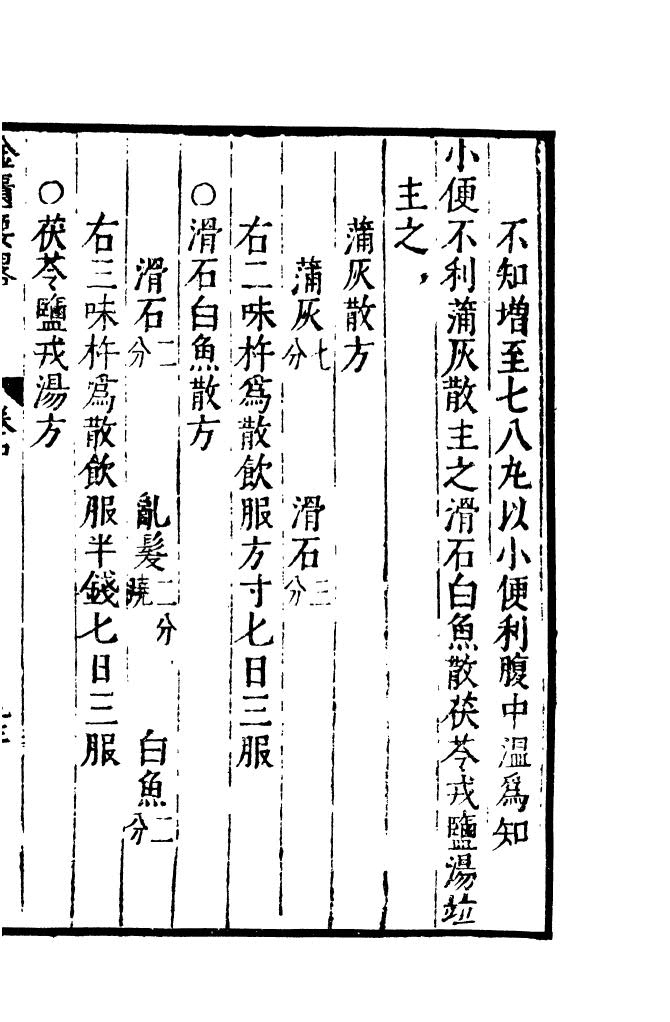 不知增至七八丸以小便利腹中溫爲知
小便不利蒲灰散主之滑石白魚散茯苓戎鹽湯竝
主之，
蒲灰散方
蒲灰七分　滑石三分
右二味杵爲散飲服方寸七日三服
○滑石白魚散方
滑石二分　亂髮二分燒　白魚二分
右三味杵爲散飲服半錢七日三服
○茯苓鹽戎湯方
金匱要畧　卷中